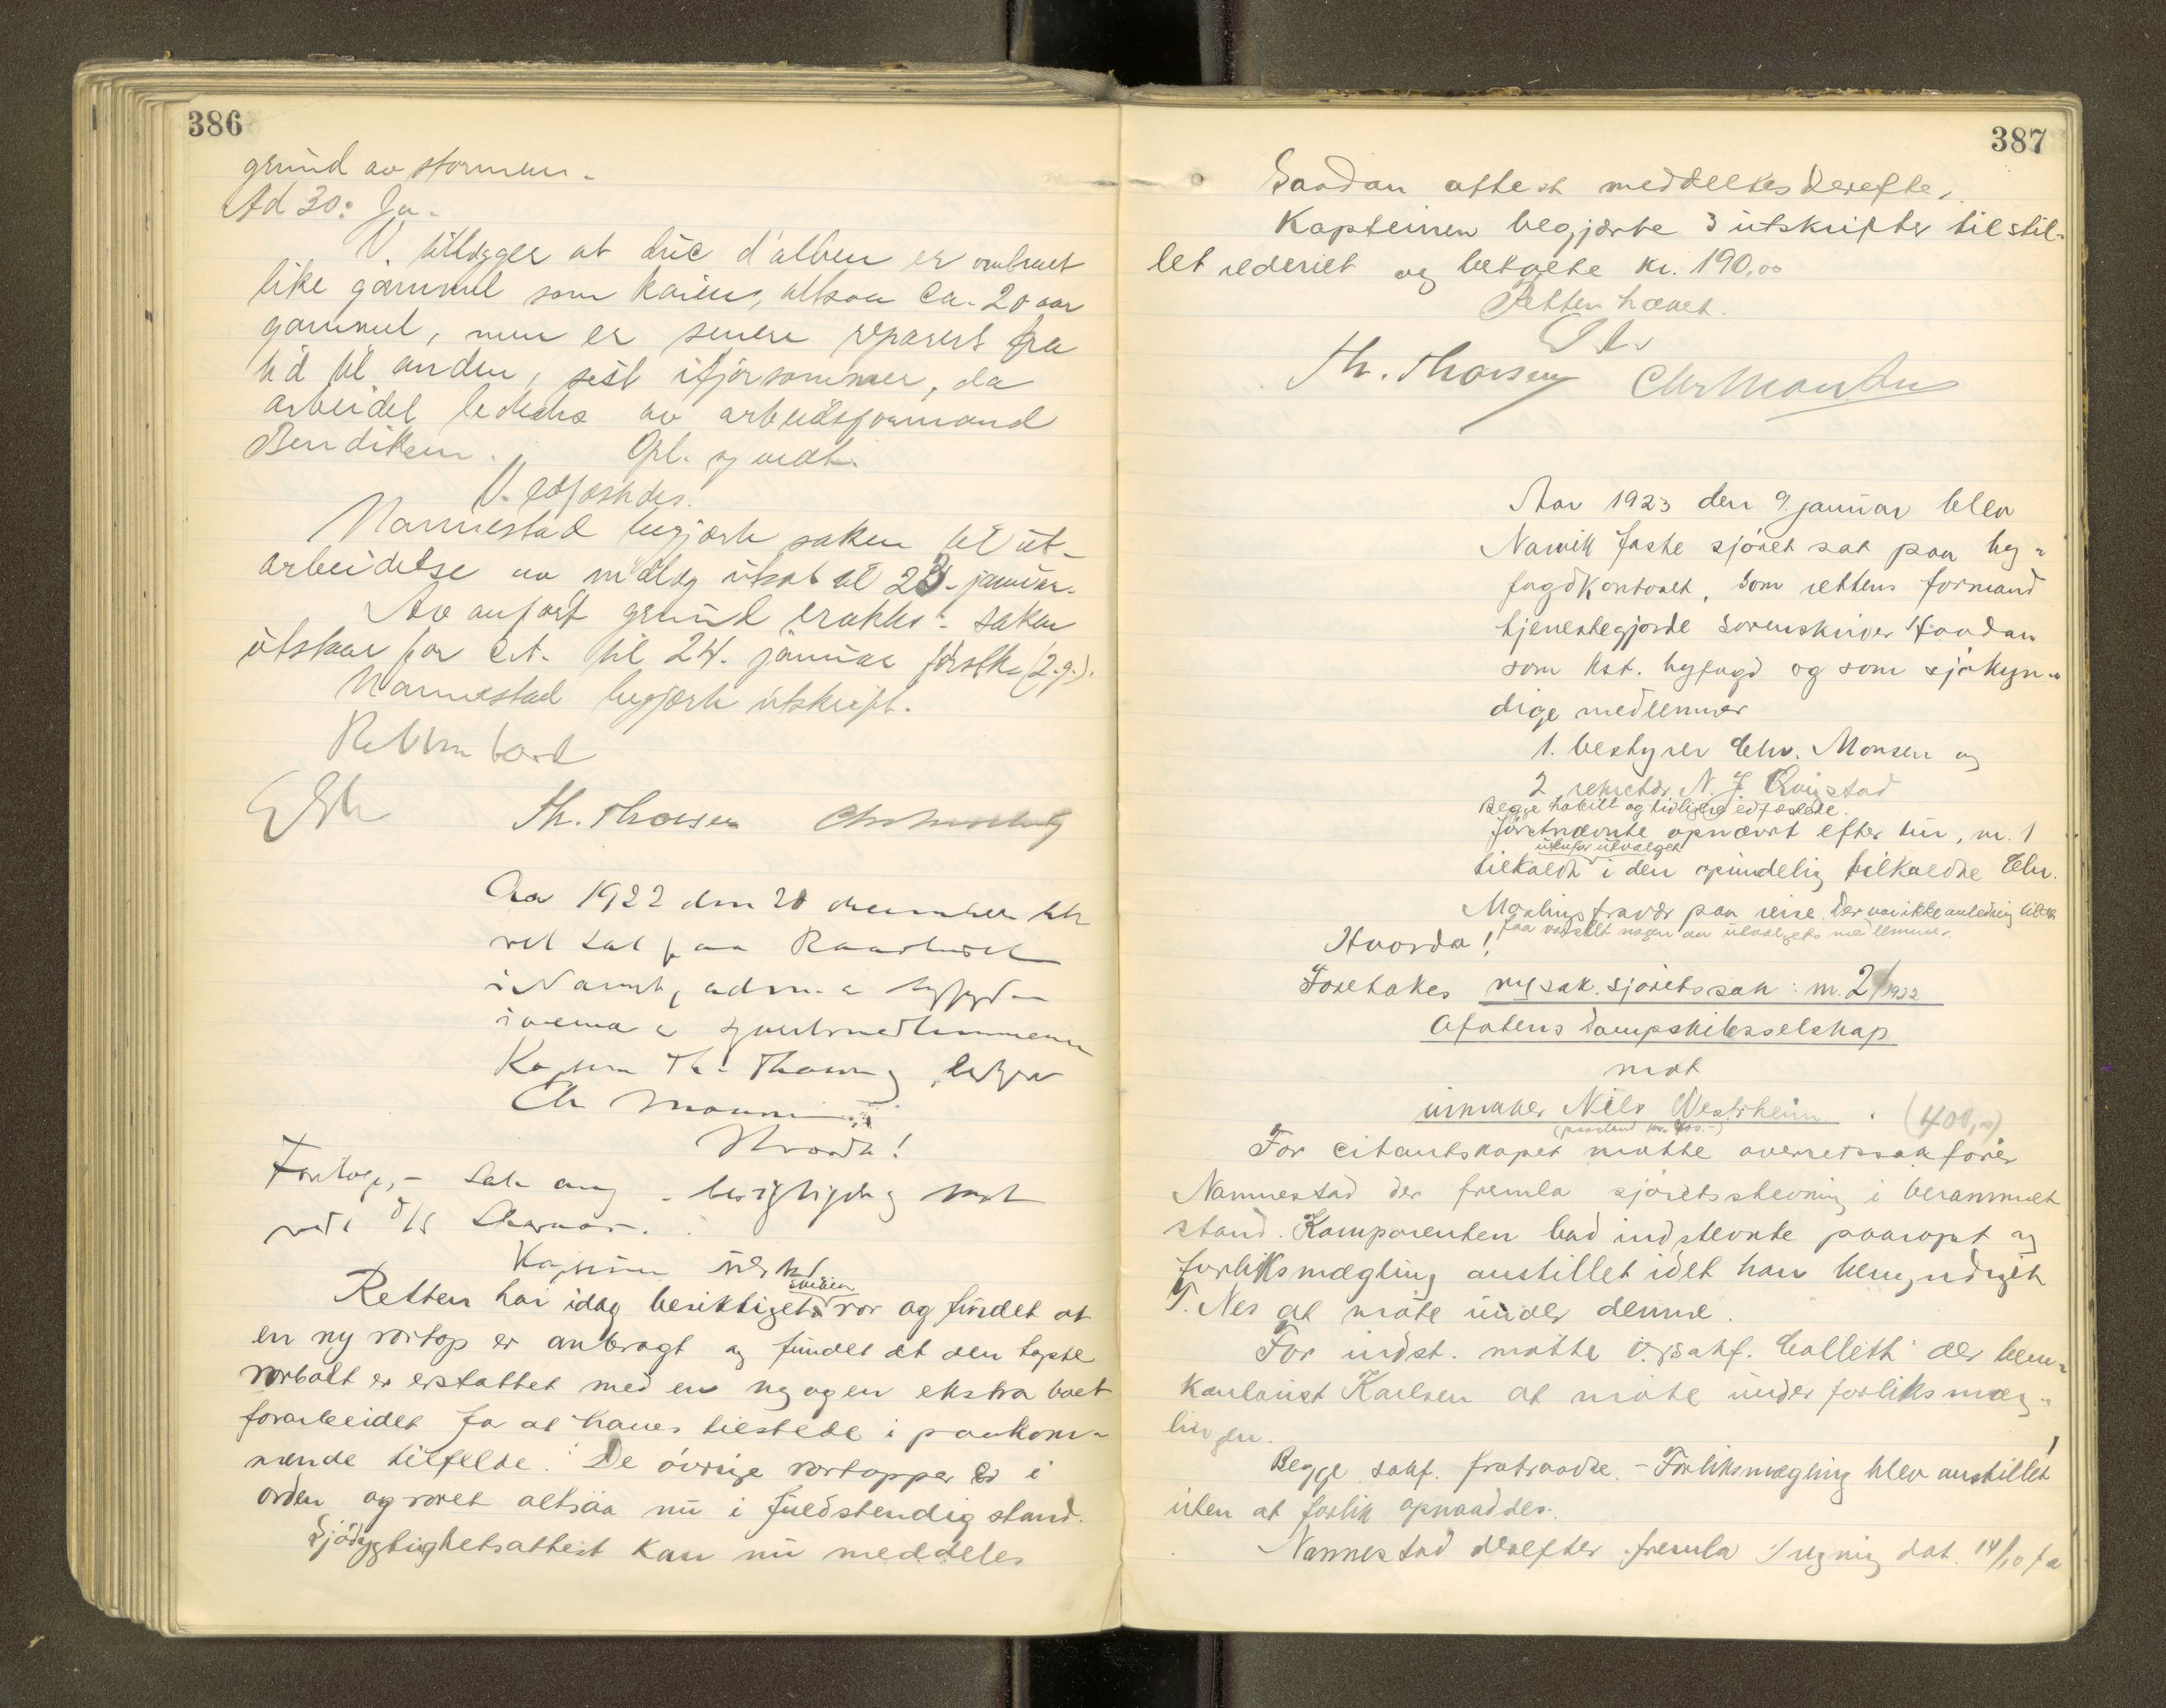 386
grund av stormen.
Ad 30: Ja.
V. tillægger at duc d'alben er omtrent
like gammel som kaien, altsaa ca. 20 aar
gammel, men er senere reparert fra
tid til anden, sist ifjorsommer, da
arbeidet lededes av arbeidsformand
Bendiksen. Opl. og vedt.
V. edfæstedes.
Nannestad begjærte saken til ut-
arbeidelse av indlæg utsat til 23. januar.
Av anført grund utsættes saken
for cit. til 24. januar førstk. (2.g.).
Nannestad begjærte utskrift.
Retten hævet
Th. Thorsen
Aar 1922 den 20 december blev
ret sat paa Raadhuset
i Narvik, adm. av byfogden
i overvær av sjøretsmedlemmene
Kaptein Th. Thorsen og bestyrer
Chr. Monsen
Hvorda!
Foretoges sak ang. besigtigelse
D/S
Kapteinen
Retten har idag besiktiget skibets ror og fundet at
en ny rortap er anbragt og fundet at den tapte
rorbolt er erstattet med en ny og en ekstra bolt
forarbeidet for at haves tilstede i paakom-
mende tilfelde. De øvrige rortapper er i
orden og roret altsaa nu i fuldstendig stand.
Sjødygtighetsattest kan nu meddeles
387
Saadan attest meddeltes derefter.
Kapteinen begjærte 3 utskrifter tilstil-
let rederiet og betalte kr. 190,00
Retten hævet.
Th. Thorsen
Aar 1923 den 9. januar blev
Narvik faste sjøret sat paa by-
fogdkontoret, som rettens formand
tjenestegjorde sorenskriver Haadan
som kst. byfogd og som sjøkyn-
dige medlemmer
1. bestyrer Chr. Monsen og
2. N. J. Ruigstad
Begge habile og tidligere edfæstede.
førstnævnte opnævnt efter tur, nr. 1
utenfor utvalget
tilkaldt i den oprindelig tilkaldte Chr.
Martins fravær paa reise. Der var ikke anledning til at
faa varslet nogen av utvalgets medlemmer.
Hvorda!
Foretokes ny sak. sjøretssak: nr. 2/1922
Ofotens Dampskibsselskap
mot
urmaker Nils Westrheim. (400,00)
(paastand kr. 400.-)
For citantskapet møtte overretssakfører
Nannestad der fremla sjøretsstevning i berammet
stand. Komparenten bad indstevnte paaropt og
forliksmægling anstillet idet han bemyndiget
T. Nes at møte under denne.
For indst. møtte o.r.sakf. Colleth der bem.
kontorist Karlsen at møte under forliksmæg-
lingen.
Begge sakf. fratraadte. - Forliksmægling blev anstillet
uten at forlik opnaaddes.
Nannestad derefter fremla 1/ regning dat. 14/10 fa